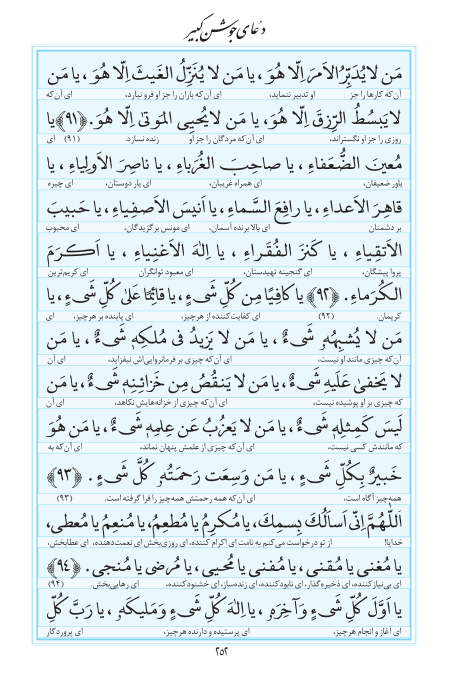 دعای جوشن کبیر
مَن لایُدَبِّرُ الاَمرَ اِلّا هُوَ ، یا مَن لا یُنَزِّلُ الغَیثَ اِلّا هُوَ ، یا مَن
آن‌که کارها را جز او تدبیر ننماید، ای آن‌که باران را جز او فرو نبارد، ای آن‌که
لایَبسُطُ الرِّزقَ اِلّا هُوَ، یا مَن لایُحیِی المَوتیٰ اِلّا هُوَ. ﴿۹۱﴾ یا
روزی را جز او نگستراند، ای آن‌که مردگان را جز او زنده نسازد. (۹۱) ای
مُعینَ الضُّعَفاءِ ، یا صاحِبَ الغُرَباءِ ، یا ناصِرَ الاَولِیاءِ ، یا
یاور ضعیفان، ای همراه غریبان، ای یار دوستان، ای چیره
قاهِرَ الاَعداءِ ، یا رافِعَ السَّماءِ ، یا اَنیسَ الاَصفِیاءِ ، یا حَبیبَ
بر دشمنان ای بالا برنده آسمان، ای مونس برگزیدگان، ای محبوب
الاَتقِیاءِ ، یا کَنزَ الفُقَراءِ ، یا اِلٰهَ الاَغنِیاءِ ، یا اَکرَمَ
پروا پیشگان، ای گنجینه تهیدستان، ای معبود توانگران ای کریم‌ترین
الکُرَماءِ. ﴿۹۲﴾ یا کافِیًا مِن کُلِّ شَیءٍ ، یا قائِمًا عَلیٰ کُلِّ شَیءٍ ، یا
کریمان. (۹۲) ای کفایت‌کننده از هرچیز، ای پاینده بر هرچیز، ای
مَن لا یُشبِهُهٗ شَیءٌ ، یا مَن لا یَزیدُ فی مُلکِهٖ شَیءٌ ، یا مَن
آن‌که چیزی مانند او نیست، ای آن‌که چیزی بر فرمانروایی‌اش نیفزاید، ای آن
لا یَخفیٰ عَلَیهِ شَیءٌ ، یا مَن لا یَنقُصُ مِن خَزائِنِهٖ شَیءٌ ، یا مَن
که چیزی بر او پوشیده نیست، ای آن‌که چیزی از خزانه‌هایش نکاهد، ای آن
لَیسَ کَمِثلِهٖ شَیءٌ ، یا مَن لا یَعزُبُ عَن عِلمِهٖ شَیءٌ ، یا مَن هُوَ
که مانندش کسی نیست، ای آن‌که چیزی از علمش پنهان نماند، ای آن‌که به
خَبیرٌ بِکُلِّ شَیءٍ ، یا مَن وَسِعَت رَحمَتُهٗ کُلَّ شَیءٍ . ﴿۹۳﴾
همه‌چیز آگاه است، ای آن‌که همه رحمتش همه‌چیز را فرا گرفته است. (۹۳)
اَللّٰهُمَّ اِنّی اَسأَلُکَ بِسمِکَ، یا مُکرِمُ یا مُطعِمُ، یا مُنعِمُ یا مُعطی،
خدایا! از تو درخواست می‌کنم به نامت ای اکرام کننده، ای روزی‌بخش ای نعمت‌دهنده، ای عطابخش،
یا مُغنی یا مُقنی، یا مُفنی یا مُحیی، یا مُرضی یا مُنجی. ﴿۹۴﴾
ای بی‌نیاز کننده، ای ذخیره‌گذار، ای نابود کننده، ای زنده‌ساز، ای خشنود کننده، ای رهایی‌بخش. (۹۴)
یا اَوَّلَ کُلِّ شَیءٍ وَ آخِرَهٗ ، یا اِلٰهَ کُلِّ شَیءٍ وَ مَلیکَهٗ ، یا رَبَّ کُلِّ
ای آغاز و انجام هرچیز، ای پرستیده و دارنده هرچیز، ای پروردگار
۲۵۲